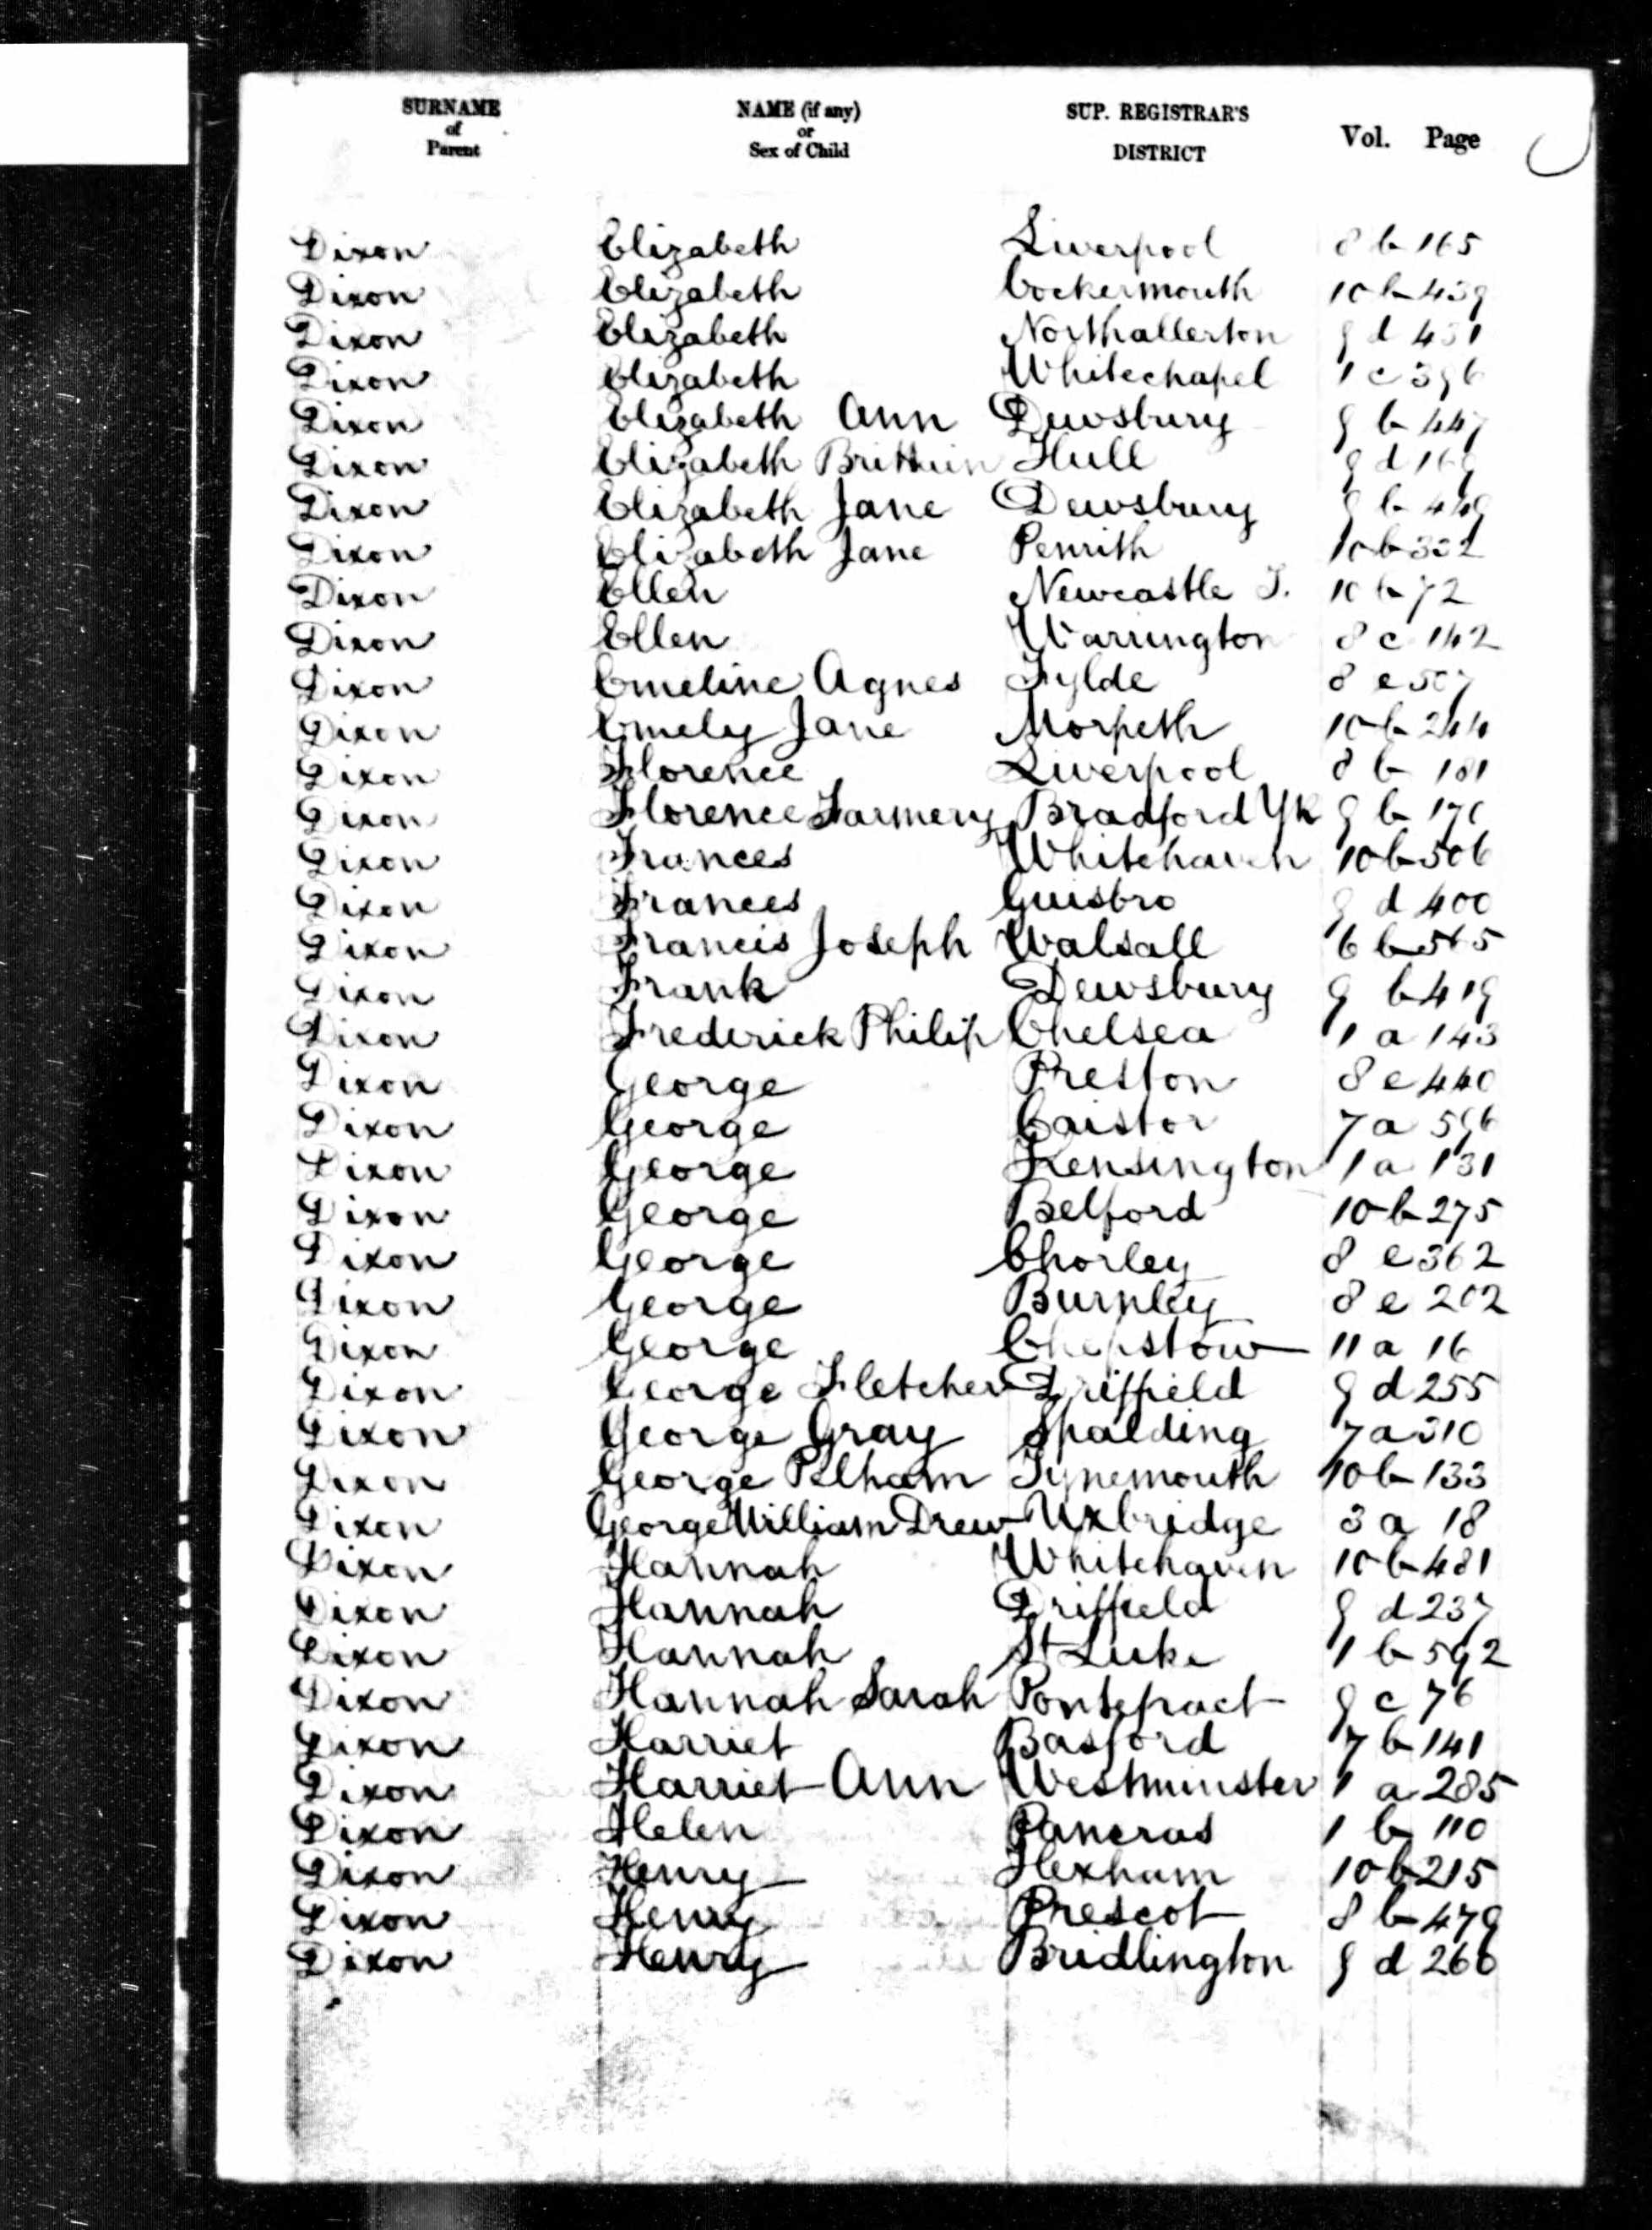 SURNAME of Parent NAME (if any) or Sex of Child SUP. REGISTRAR'S DISTRICT Vol. Page
Dixon Elizabeth Liverpool 8 b 165
Dixon Elizabeth Cockermouth 10 b 439
Dixon Elizabeth Northallerton 9 d 431
Dixon Elizabeth Whitechapel 1 c 396
Dixon Elizabeth Ann Dewsbury 9 b 447
Dixon Elizabeth Brittain Hull 9 d 169
Dixon Elizabeth Jane Dewsbury 9 b 449
Dixon Elizabeth Jane Penrith 10 b 332
Dixon Ellen Newcastle T. 10 b 72
Dixon Ellen Warrington 8 c 142
Dixon Emeline Agnes Fylde 8 e 507
Dixon Emely Jane Morpeth 10 b 244
Dixon Florence Liverpool 8 b 181
Dixon Florence Farmery Bradford Yk 9 b 170
Dixon Frances Whitehaven 10 b 506
Dixon Frances Guisbro 9 d 400
Dixon Francis Joseph Walsall 6 b 565
Dixon Frank Dewsbury 9 b 419
Dixon Frederick Philip Chelsea 1 a 143
Dixon George Preston 8 e 440
Dixon George Caistor 7 a 596
Dixon George Kensington 1 a 131
Dixon George Belford 10 b 275
Dixon George Chorley 8 e 362
Dixon George Burnley 8 e 202
Dixon George Chepstow 11 a 16
Dixon George Fletcher Driffield 9 d 255
Dixon George Gray Spalding 7 a 310
Dixon George Pelham Tynemouth 10 b 133
Dixon George William Drew Uxbridge 3 a 18
Dixon Hannah Whitehaven 10 b 481
Dixon Hannah Driffield 9 d 237
Dixon Hannah St Luke 1 b 592
Dixon Hannah Sarah Pontefract 9 c 76
Dixon Harriet Basford 7 b 141
Dixon Harriet Ann Westminster 1 a 285
Dixon Helen Pancras 1 b 110
Dixon Henry Hexham 10 b 215
Dixon Henry Prescot 8 b 479
Dixon Henry Bridlington 9 d 266